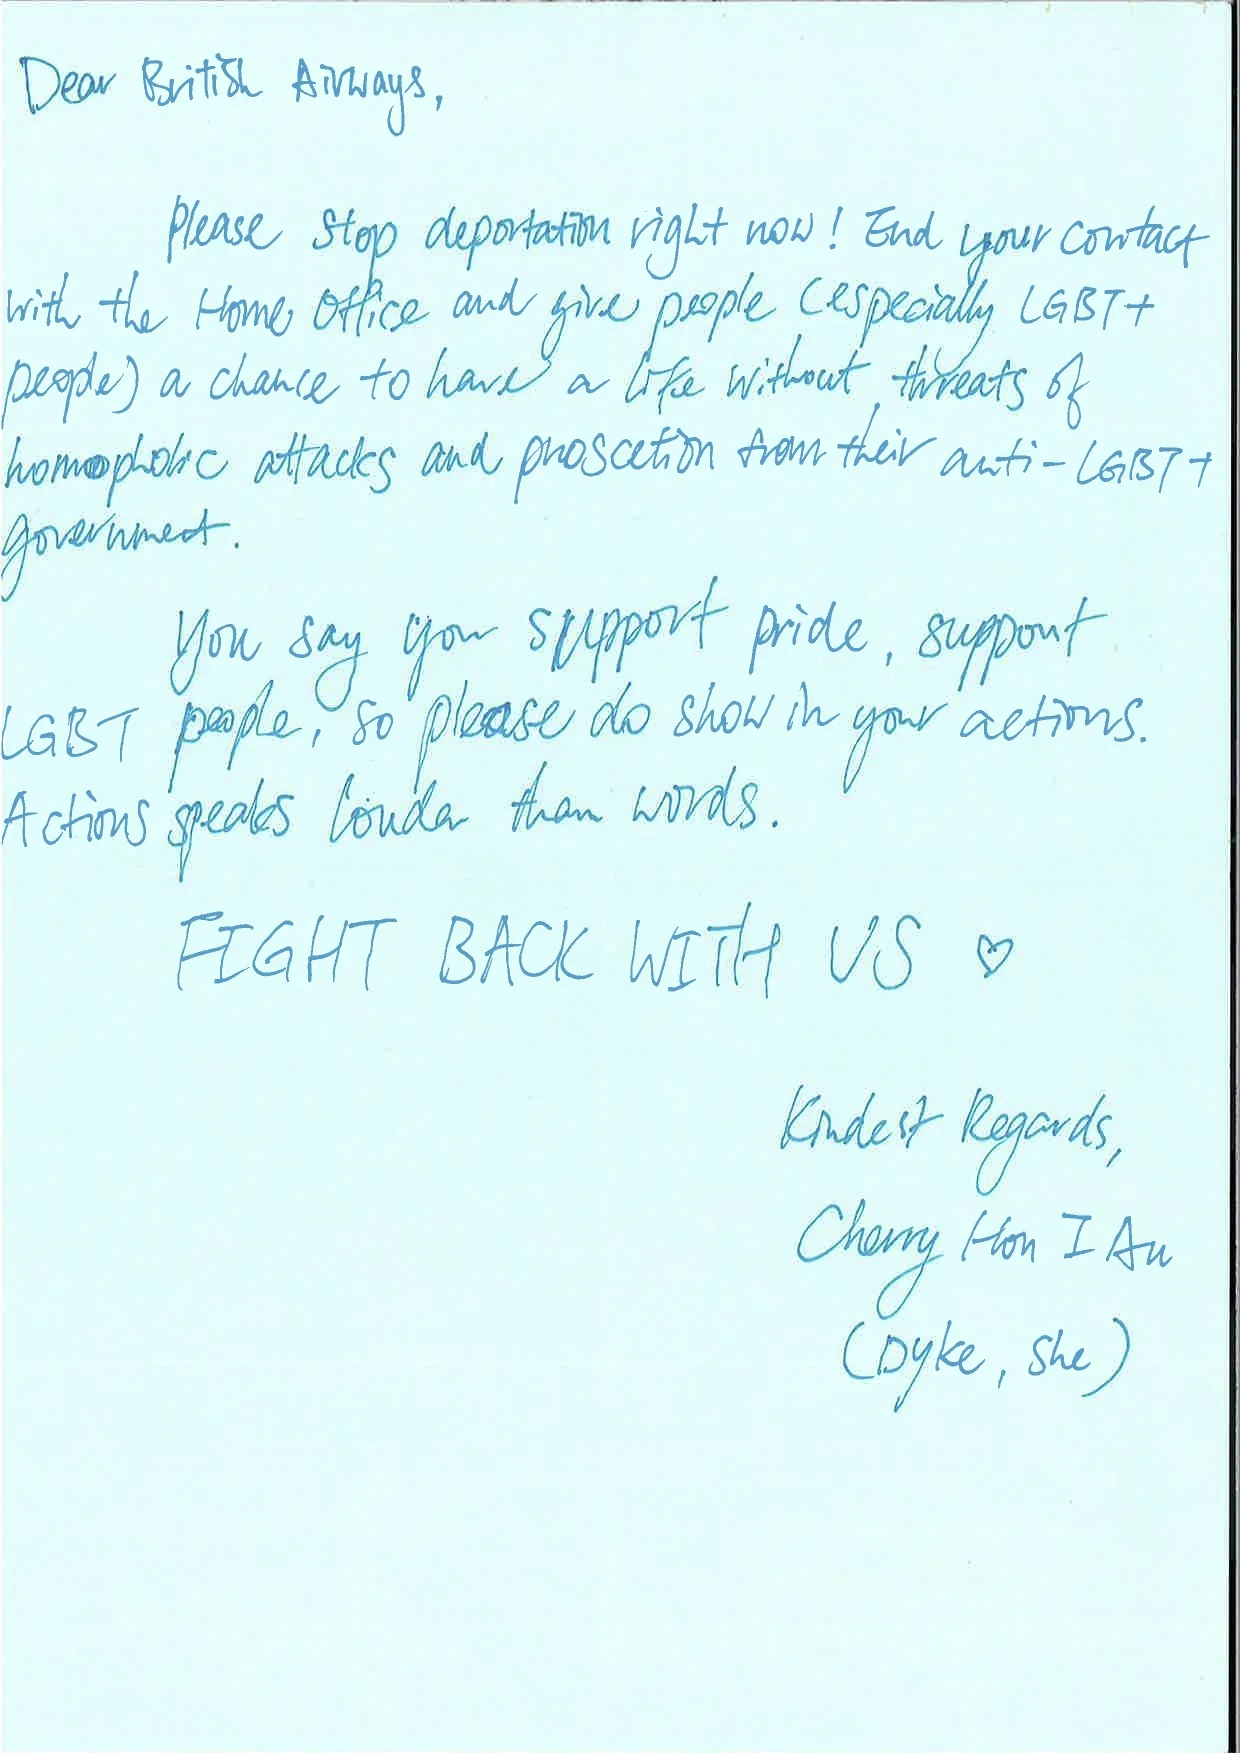 Dear British Airways,
Please stop deportation right now! End your contact
with the Home Office and give people (especially LGBT+
people) a chance to have a life without threats of
homophobic attacks and proscetion from their anti-LGBT+
government.
You say your support pride, support
LGBT people, so please do show in your actions.
Actions speaks louder than words.
FIGHT BACK WITH US ♡
Kindest Regards,
Cherry Hon I Au
(Dyke, she)